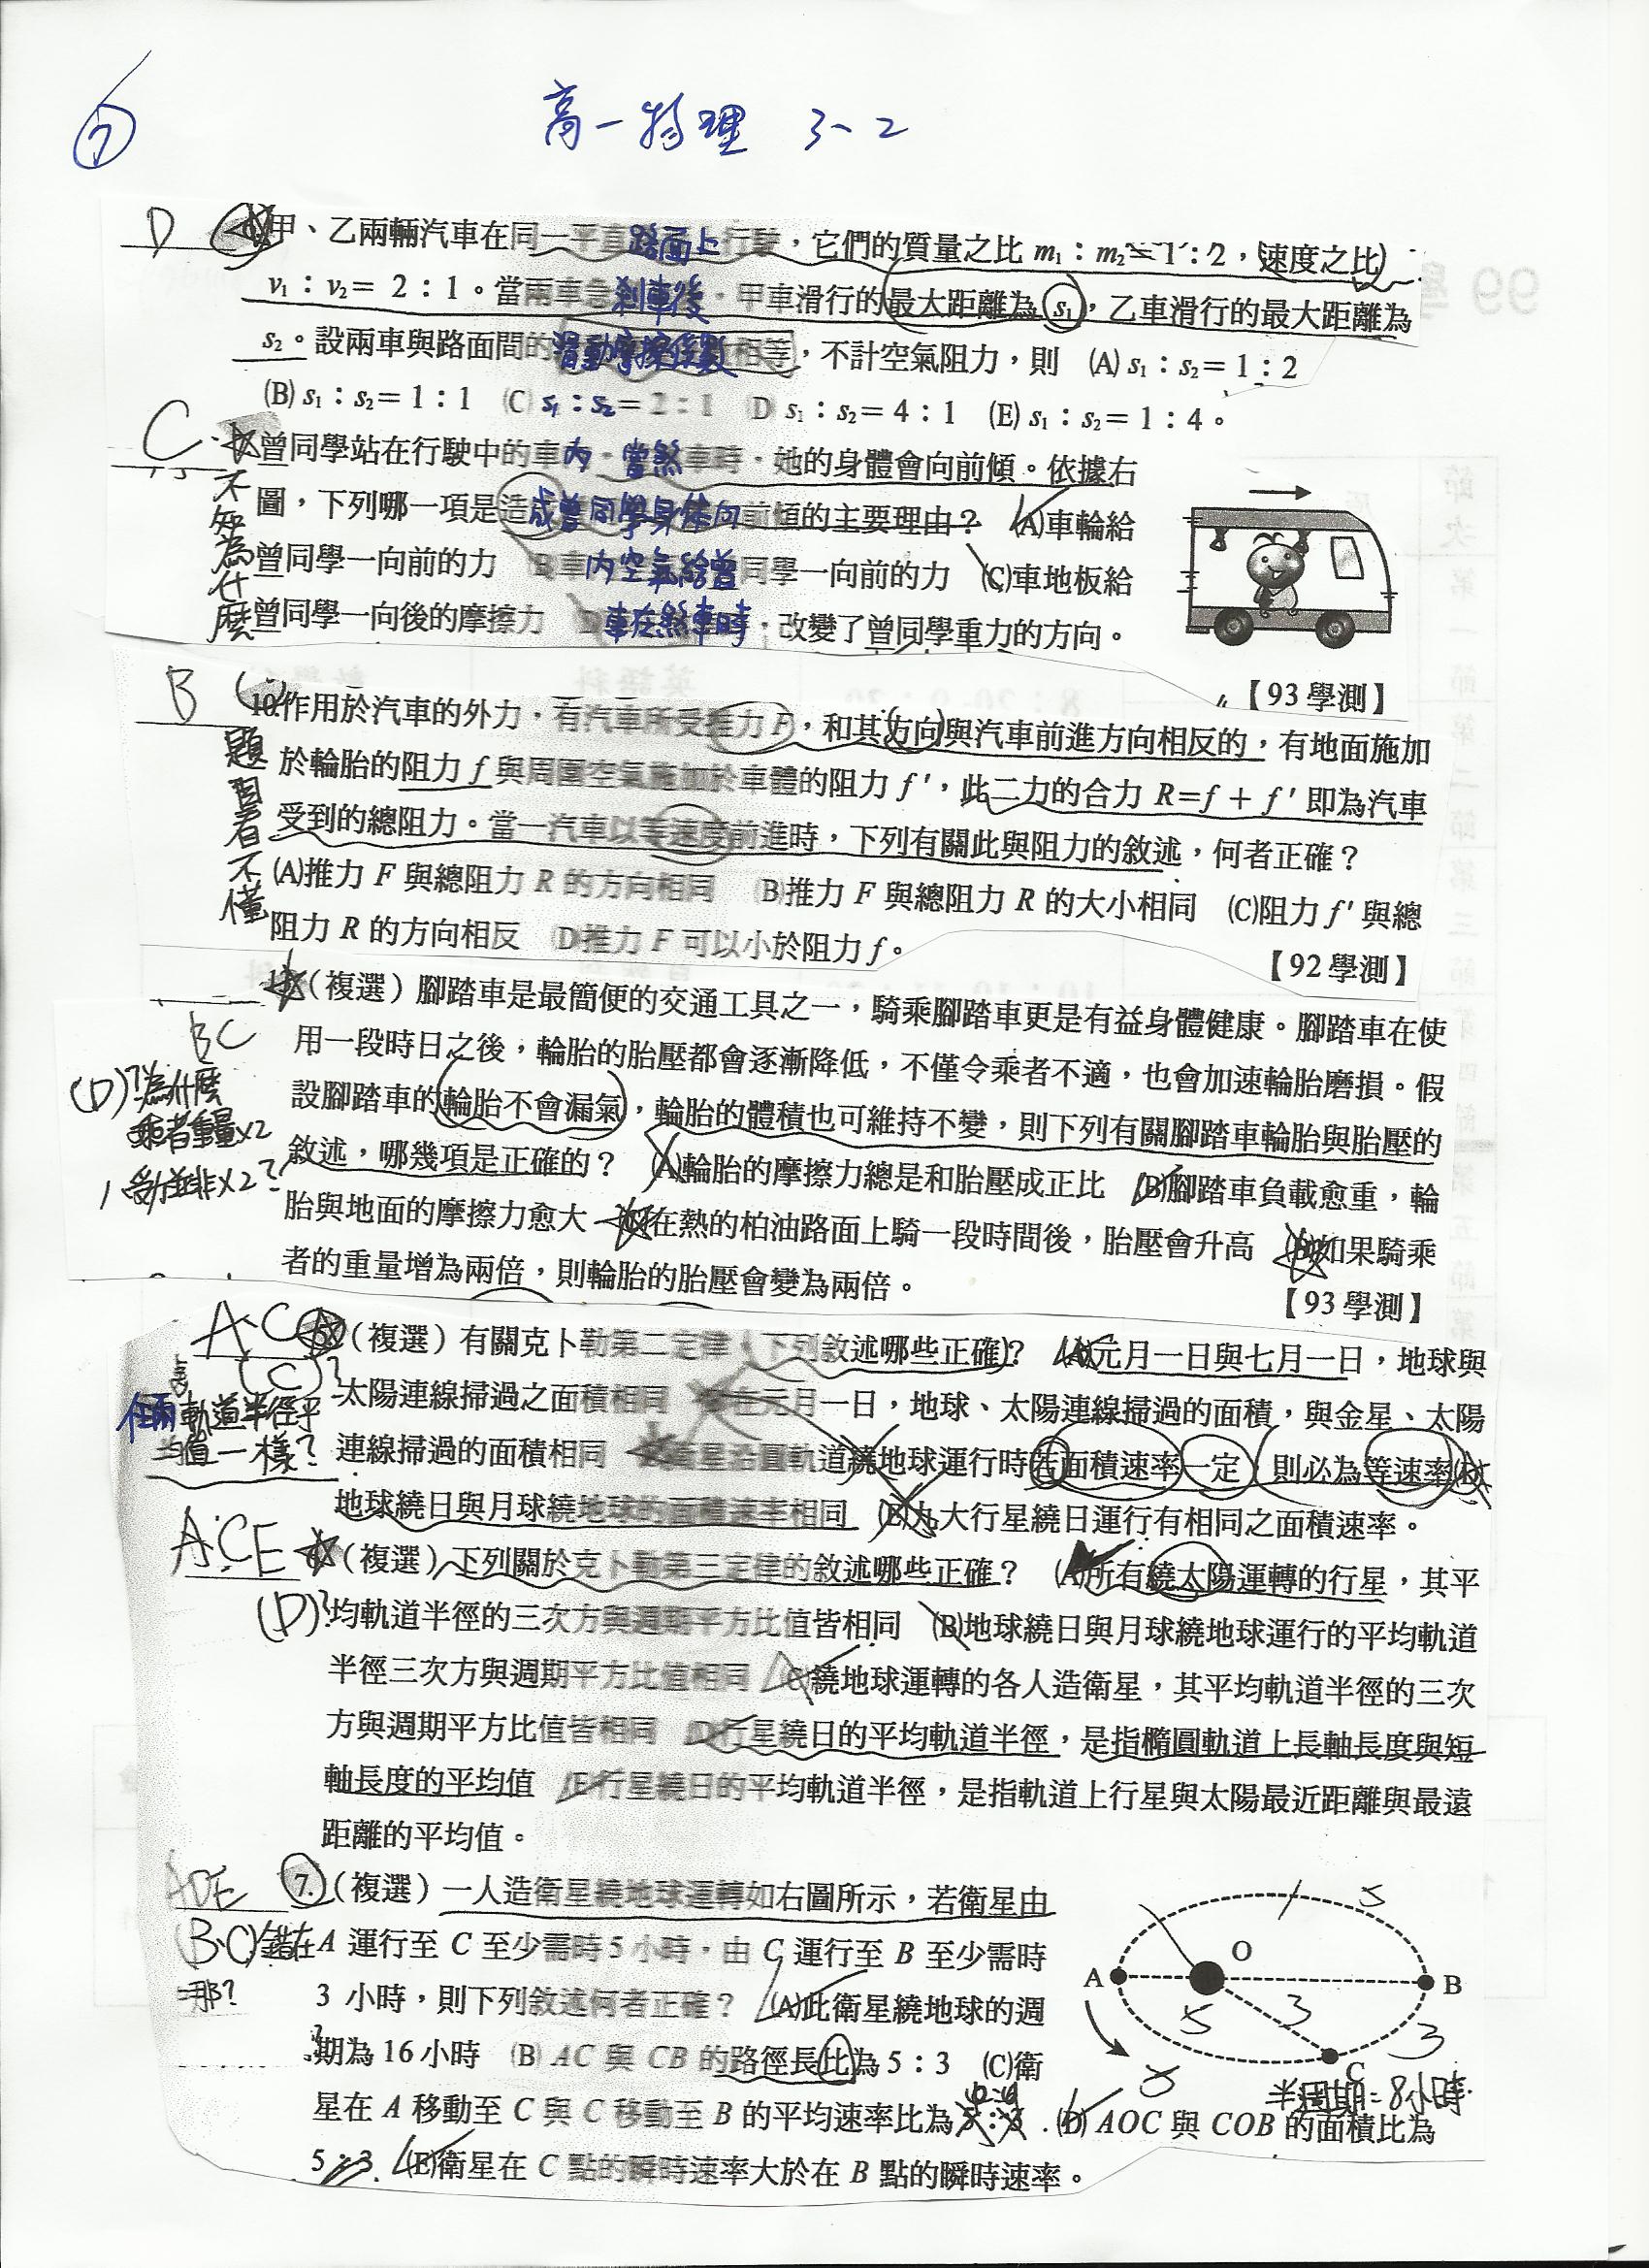 ⑦
高一物理 3-2
D 甲、乙兩輛汽車在同一平直路面上行駛，它們的質量之比 m₁：m₂=1：2，速度之比
v₁：v₂= 2：1。當兩車急剎車後，甲車滑行的最大距離為 s₁，乙車滑行的最大距離為
s₂。設兩車與路面間的滑動摩擦係數相等，不計空氣阻力，則 (A) s₁：s₂=1：2
(B) s₁：s₂=1：1 (C) s₁：s₂=2：1 (D) s₁：s₂=4：1 (E) s₁：s₂=1：4。
C 曾同學站在行駛中的車內，當煞車時，她的身體會向前傾。依據右
圖，下列哪一項是造成曾同學身体向前傾的主要理由？ (A)車輪給
曾同學一向前的力 (B)車內空氣給曾同學一向前的力 (C)車地板給
曾同學一向後的摩擦力 (D)車在煞車時，改變了曾同學重力的方向。
【93 學測】
不知為什麼
B 10.作用於汽車的外力，有汽車所受推力 F，和其方向與汽車前進方向相反的，有地面施加
於輪胎的阻力 f 與周圍空氣施加於車體的阻力 f'，此二力的合力 R=f + f' 即為汽車
受到的總阻力。當一汽車以等速度前進時，下列有關此與阻力的敘述，何者正確？
(A)推力 F 與總阻力 R 的方向相同 (B)推力 F 與總阻力 R 的大小相同 (C)阻力 f' 與總
阻力 R 的方向相反 (D)推力 F 可以小於阻力 f。
【92 學測】
題目看不懂
（複選）腳踏車是最簡便的交通工具之一，騎乘腳踏車更是有益身體健康。腳踏車在使
BC 用一段時日之後，輪胎的胎壓都會逐漸降低，不僅令乘者不適，也會加速輪胎磨損。假
設腳踏車的輪胎不會漏氣，輪胎的體積也可維持不變，則下列有關腳踏車輪胎與胎壓的
敘述，哪幾項是正確的？ (A)輪胎的摩擦力總是和胎壓成正比 (B)腳踏車負載愈重，輪
胎與地面的摩擦力愈大 (C)在熱的柏油路面上騎一段時間後，胎壓會升高 (D)如果騎乘
者的重量增為兩倍，則輪胎的胎壓會變為兩倍。
【93 學測】
(D)?為什麼
乘者重量×2
受力並非×2?
AC （複選）有關克卜勒第二定律，下列敘述哪些正確？ (A)元月一日與七月一日，地球與
太陽連線掃過之面積相同 (B)在元月一日，地球、太陽連線掃過的面積，與金星、太陽
連線掃過的面積相同 (C)衛星沿圓軌道繞地球運行時若面積速率一定，則必為等速率 (D)
地球繞日與月球繞地球的面積速率相同 (E)九大行星繞日運行有相同之面積速率。
(C)?
軌道半徑平
均值一樣?
ACE （複選）下列關於克卜勒第三定律的敘述哪些正確？ (A)所有繞太陽運轉的行星，其平
(D)? 均軌道半徑的三次方與週期平方比值皆相同 (B)地球繞日與月球繞地球運行的平均軌道
半徑三次方與週期平方比值相同 (C)繞地球運轉的各人造衛星，其平均軌道半徑的三次
方與週期平方比值皆相同 (D)行星繞日的平均軌道半徑，是指橢圓軌道上長軸長度與短
軸長度的平均值 (E)行星繞日的平均軌道半徑，是指軌道上行星與太陽最近距離與最遠
距離的平均值。
ADE 7.（複選）一人造衛星繞地球運轉如右圖所示，若衛星由
A 運行至 C 至少需時 5 小時，由 C 運行至 B 至少需時
3 小時，則下列敘述何者正確？ (A)此衛星繞地球的週
期為 16 小時 (B) AC 與 CB 的路徑長比為 5：3 (C)衛
星在 A 移動至 C 與 C 移動至 B 的平均速率比為 5：3 (D) AOC 與 COB 的面積比為
5：3 (E)衛星在 C 點的瞬時速率大於在 B 點的瞬時速率。
(B.C)錯在
哪?
A O B C
5 3 5 3
半周期=8小時